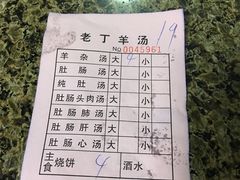 老丁羊汤 19
No 0045961
羊杂汤 大 4 小
肚肠汤 大 小
纯肚汤 大 小
肚肠头肉汤 大 小
肚肠肺汤 大 小
肚肠肝汤 大 小
肚肠心汤 大 小
主食 烧饼 4 酒水